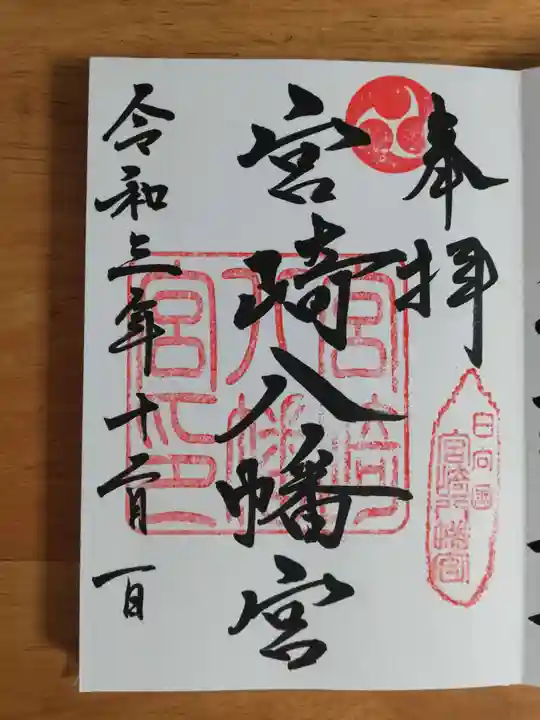 奉拝
宮崎八幡宮
令和三年十二月一日
日向国
宮崎八幡宮
宮崎
八幡
宮印